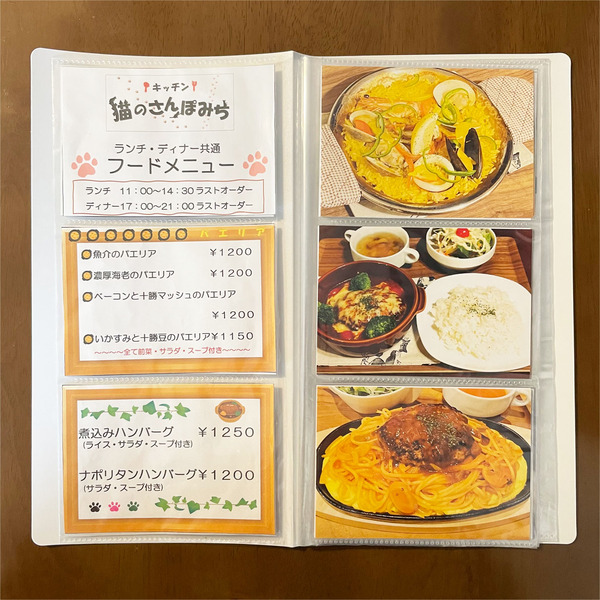 キッチン
猫のさんぽみち
ランチ・ディナー共通
フードメニュー
ランチ 11:00～14:30ラストオーダー
ディナー17:00～21:00ラストオーダー
パエリア
魚介のパエリア ¥1200
濃厚海老のパエリア ¥1200
ベーコンと十勝マッシュのパエリア
¥1200
いかすみと十勝豆のパエリア¥1150
～～～～全て前菜・サラダ・スープ付き～～～～
煮込みハンバーグ ¥1250
(ライス・サラダ・スープ付き)
ナポリタンハンバーグ¥1200
(サラダ・スープ付き)